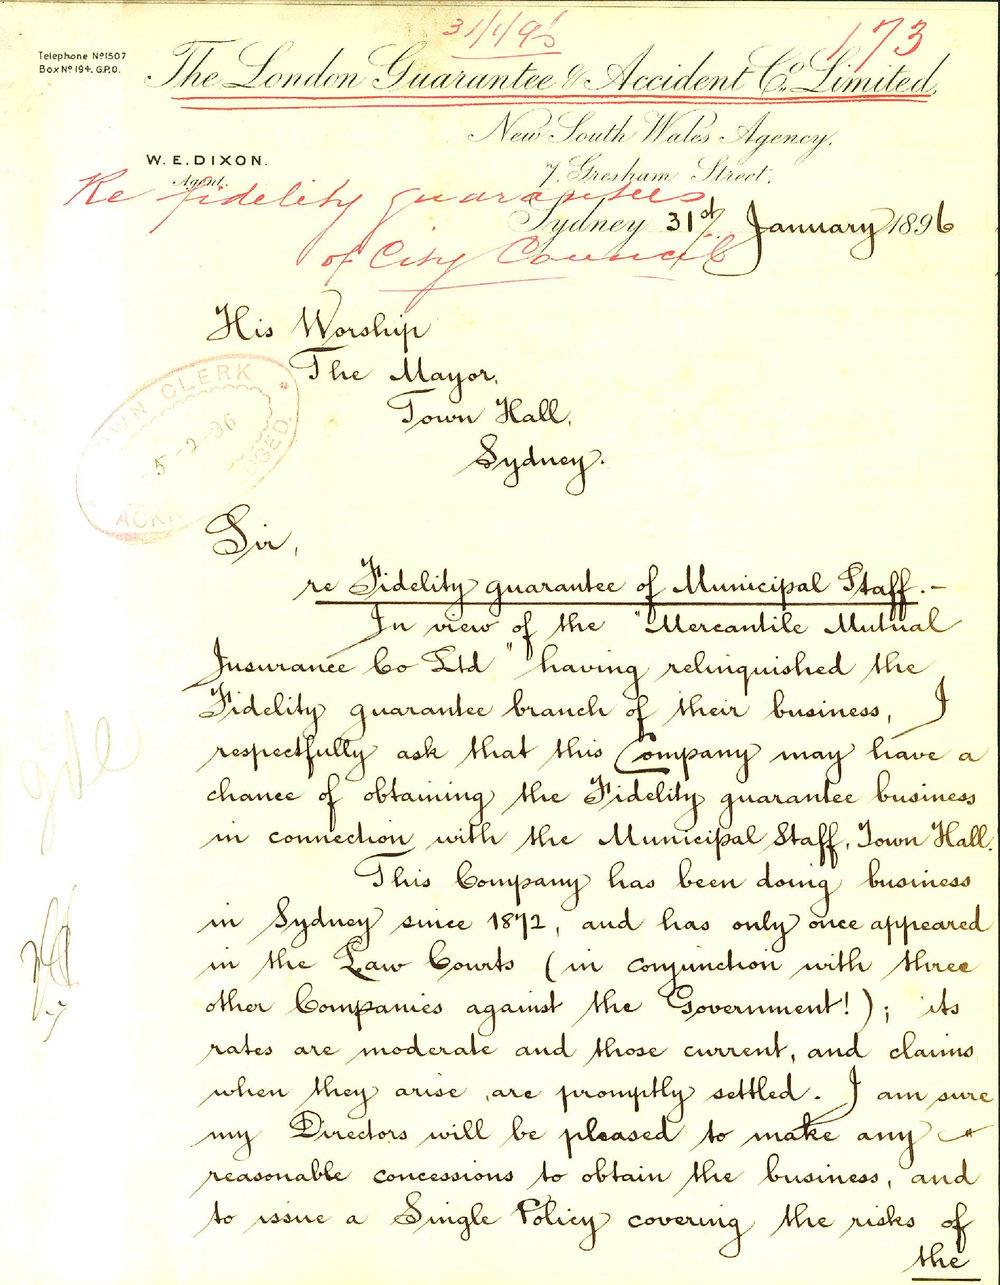 31/1/96
173
Telephone No 1507
Box No 194, G.P.O.
The London Guarantee & Accident Co. Limited,
New South Wales Agency,
7, Gresham Street,
W. E. DIXON.
Agent.
Re fidelity guarantees
of City Council
Sydney 31st January 1896
His Worship
The Mayor,
Town Hall,
Sydney.
TOWN CLERK
5-2-96
Sir,
re Fidelity guarantee of Municipal Staff.-
In view of the "Mercantile Mutual
Insurance Co Ltd" having relinquished the
Fidelity guarantee branch of their business, I
respectfully ask that this Company may have a
chance of obtaining the Fidelity guarantee business
in connection with the Municipal Staff, Town Hall.
This Company has been doing business
in Sydney since 1872, and has only once appeared
in the Law Courts (in conjunction with three
other Companies against the Government!); its
rates are moderate and those current, and claims
when they arise, are promptly settled. I am sure
my Directors will be pleased to make any
reasonable concessions to obtain the business, and
to issue a Single Policy covering the risks of
the